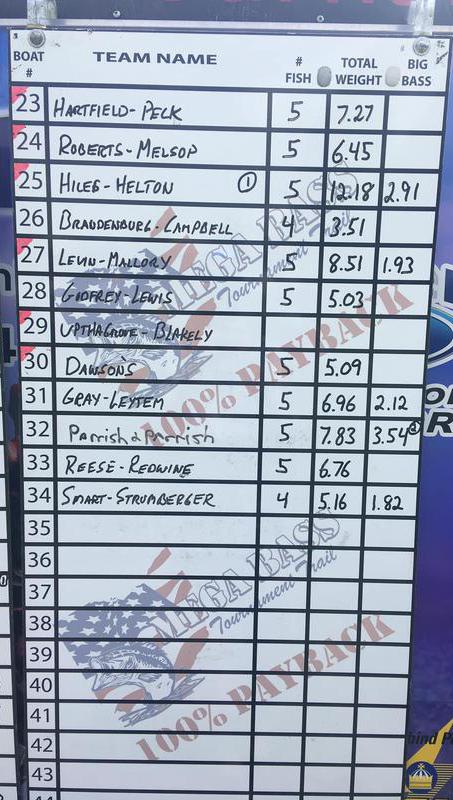 BOAT # TEAM NAME # FISH TOTAL WEIGHT BIG BASS
23 HARTFIELD-PECK 5 7.27
24 ROBERTS-MELSOP 5 6.45
25 HILES-HELTON 1 5 12.18 2.91
26 BRANDENBURG-CAMPBELL 4 3.51
27 LEVIN-MALLORY 5 8.51 1.93
28 GODFREY-LEWIS 5 5.03
29 UPTHAGROVE-BLAKELY
30 DAWSON'S 5 5.09
31 GRAY-LEYTEM 5 6.96 2.12
32 Parrish & Parrish 5 7.83 3.54 1
33 REESE-REDWINE 5 6.76
34 SMART-STRUMBERGER 4 5.16 1.82
35
36
37
38
39
40
41
42
43
MEGA BASS
Tournament Trail
100% PAYBACK
MEGA BASS
Tournament Trail
100% PAYBACK